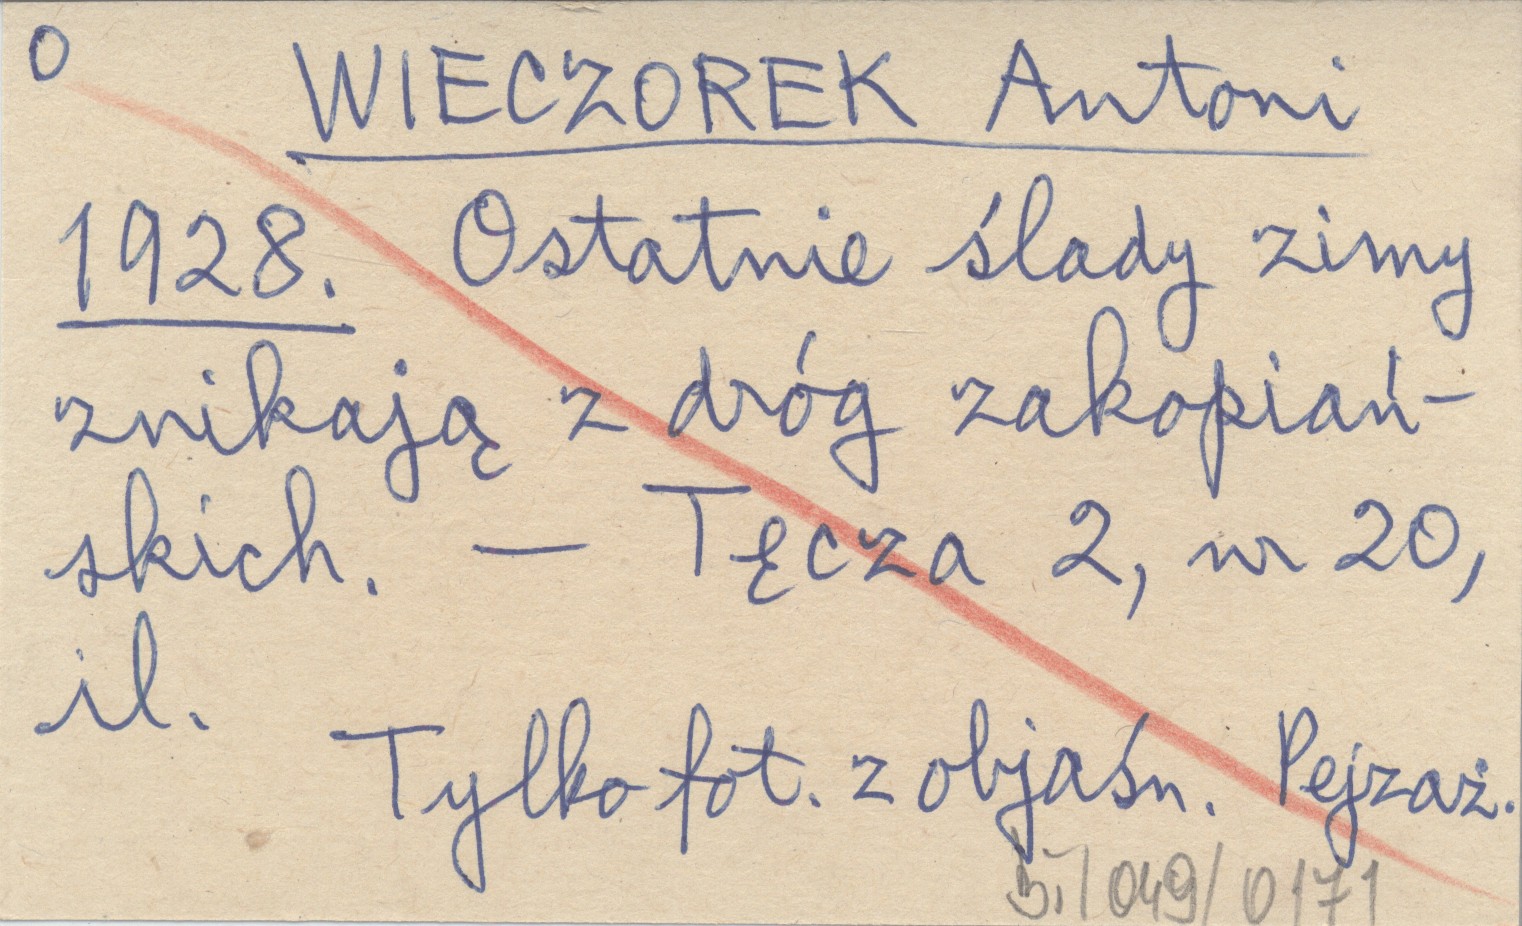 O
WIECZOREK Antoni
1928. Ostatnie ślady zimy
znikają z dróg zakopiań-
skich. — Tęcza 2, nr 20,
il.
Tylko fot. z objaśn. Pejzaż.
/049/0171